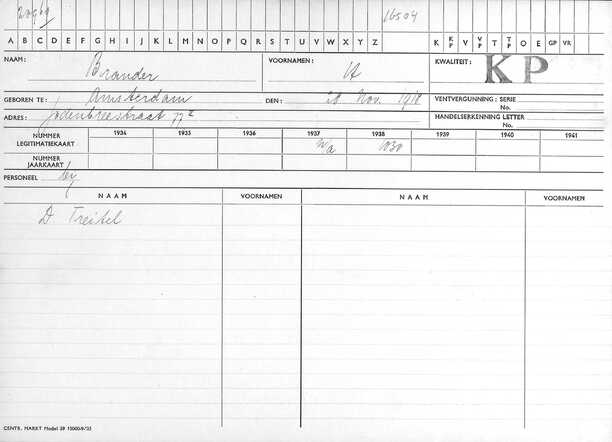 20969 16504
A B C D E F G H I J K L M N O P Q R S T U V W X Y Z K KP V VP T TP O E GP VR
NAAM: Brander VOORNAMEN: A KWALITEIT: KP
GEBOREN TE: Amsterdam DEN: 28 Nov. 1918 VENTVERGUNNING: SERIE
No.
ADRES: Jodenbreestraat 77 HANDELSERKENNING LETTER
No.
1934 1935 1936 1937 1938 1939 1940 1941
NUMMER LEGITIMATIEKAART 1030
NUMMER JAARKAART
PERSONEEL by
NAAM VOORNAMEN NAAM VOORNAMEN
D Treitel
CENTR. MARKT Model 39 15000-9/35